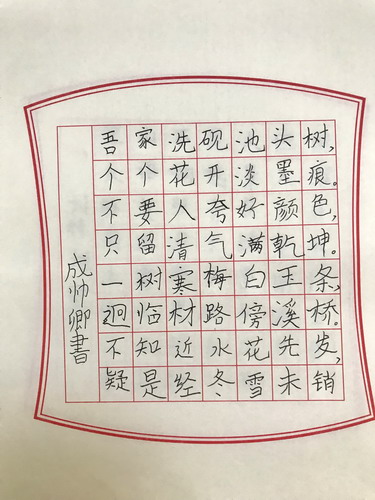 吾家洗砚池头树，
个个花开淡墨痕。
不要人夸好颜色，
只留清气满乾坤。
一树寒梅白玉条，
迥临材路傍溪桥。
不知近水花先发，
疑是经冬雪未销
成帅卿書